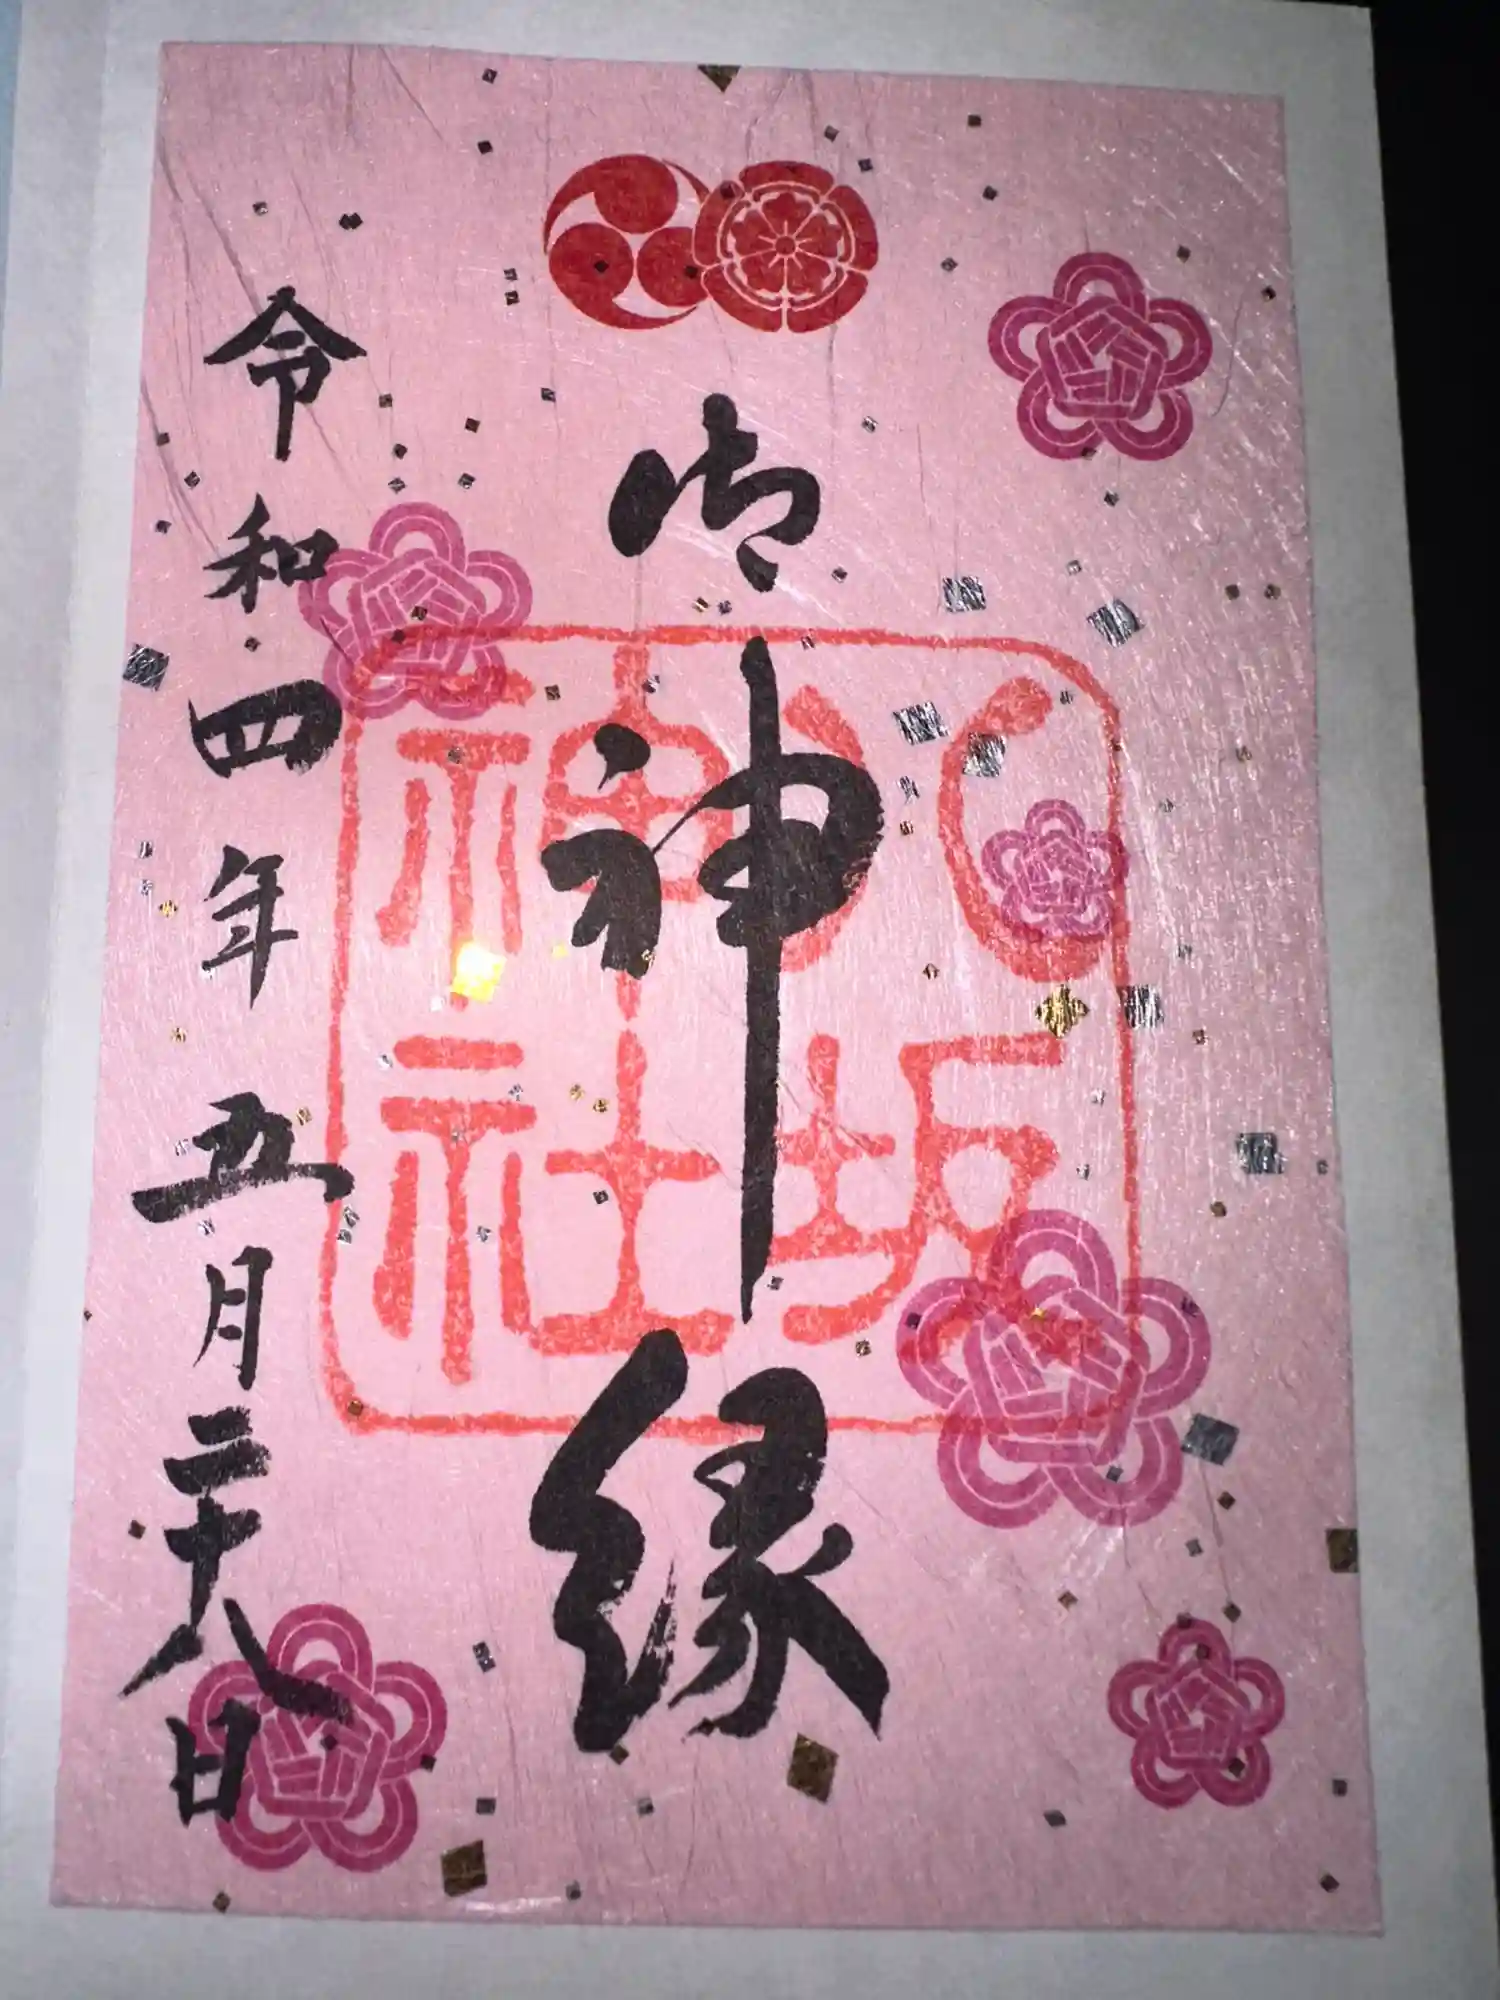 御神縁
八坂
神社
令和四年五月二十八日